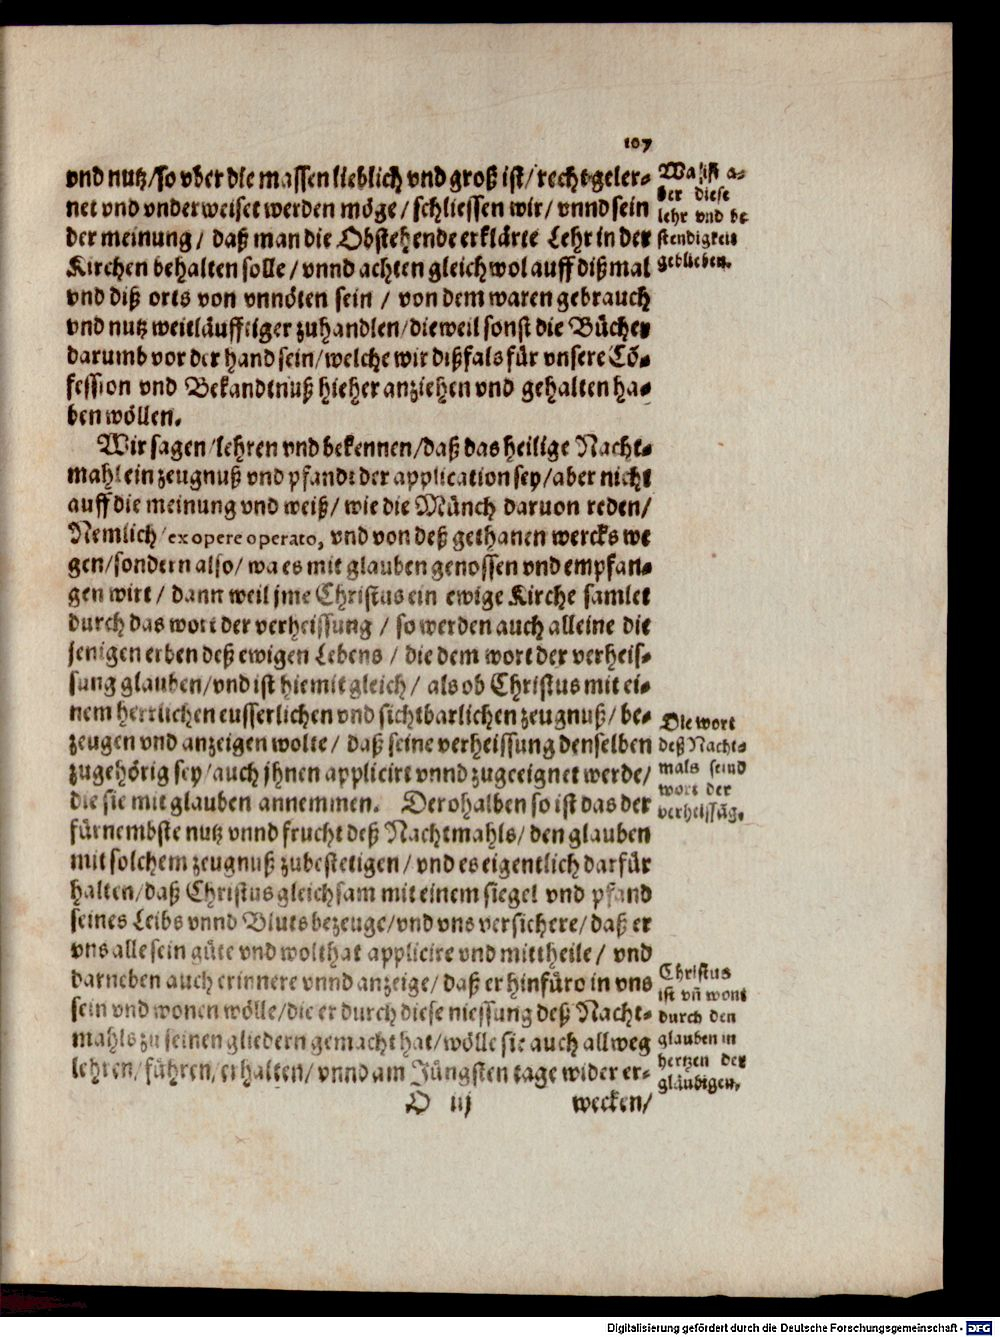 107
vnd nutz/so vber die massen lieblich vnd groß ist/recht geler-
net vnd vnderweiset werden möge/schliessen wir/vnnd sein
der meinung/daß man die Obstehende erklärte Lehr in der
Kirchen behalten solle/vnnd achten gleichwol auff dißmal
vnd diß orts von vnnöten sein/von dem waren gebrauch
vnd nutz weitläufftiger zuhandlen/dieweil sonst die Bücher
darumb vor der hand sein/welche wir dißfals für vnsere Cō-
fession vnd Bekandtnuß hieher anziehen vnd gehalten ha-
ben wöllen.
Wir sagen/lehren vnd bekennen/daß das heilige Nacht-
mahl ein zeugnuß vnd pfandt der application sey/aber nicht
auff die meinung vnd weiß/wie die Münch daruon reden/
Nemlich/ex opere operato, vnd von deß gethanen wercks we
gen/sondern also/wa es mit glauben genossen vnd empfan-
gen wirt/dann weil jme Christus ein ewige Kirche samlet
durch das wort der verheissung/so werden auch alleine die
jenigen erben deß ewigen Lebens/die dem wort der verheis-
sung glauben/vnd ist hiemit gleich/als ob Christus mit ei-
nem herrlichen eusserlichen vnd sichtbarlichen zeugnuß/be-
zeugen vnd anzeigen wolte/daß seine verheissung denselben
zugehörig sey/auch jhnen applicirt vnnd zugeeignet werde/
die sie mit glauben annemmen. Derohalben so ist das der
fürnembste nutz vnnd frucht deß Nachtmahls/den glauben
mit solchem zeugnuß zubestetigen/vnd es eigentlich darfür
halten/daß Christus gleichsam mit einem siegel vnd pfand
seines Leibs vnnd Bluts bezeuge/vnd vns versichere/daß er
vns alle sein güte vnd wolthat applicire vnd mittheile/vnd
darneben auch erinnere vnnd anzeige/daß er hinfüro in vns
sein vnd wonen wölle/die er durch diese niessung deß Nacht-
mahls zu seinen gliedern gemacht hat/wölle sie auch allweg
lehren/führen/erhalten/vnnd am Jüngsten tage wider er-
O iij wecken/
Wa ist a-
ber diese
lehr vnd be
stendigkeit
geblieben.
Die wort
deß Nacht-
mals seind
wort der
verheissūg.
Christus
ist vn̄ wont
durch den
glauben in
hertzen der
gläubigen.
Digitalisierung gefördert durch die Deutsche Forschungsgemeinschaft - DFG